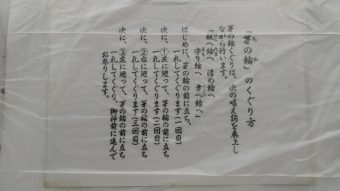 「茅の輪」のくぐり方
茅の輪くぐりは、次の唱え詞を奉上し
ながら行います。
「祓い給へ 清め給へ
守り給へ 幸へ給へ」
はじめに、茅の輪の前に立ち、
一礼してくぐります(一回目)
次に、①左に巡って、茅の輪の前に立ち
一礼してくぐります(二回目)
次に、②右に巡って、茅の輪の前に立ち
一礼してくぐります(三回目)
次に、③左に巡って、茅の輪の前に立ち
一礼してくぐり、御神前に進んで
お参りします。